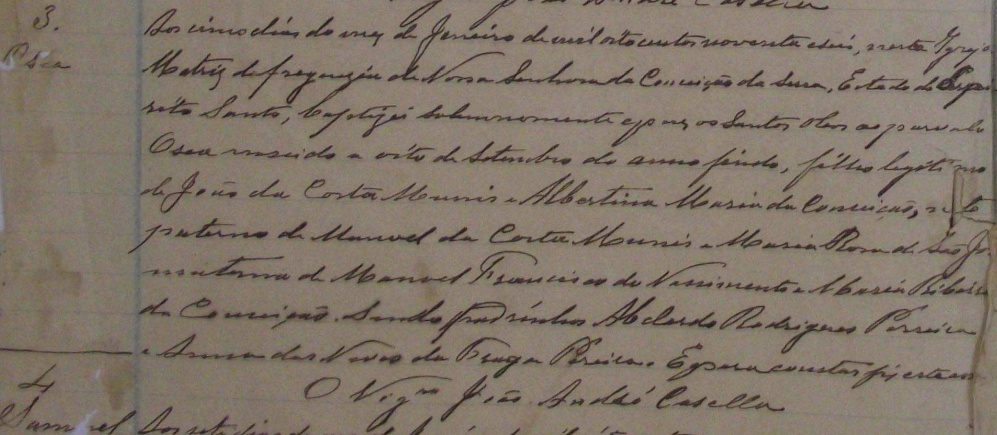 João André Casella
3.
Osea
Aos cinco dias do mez de Janeiro de mil oito centos noventa e seis, nesta Igreja
Matriz da freguezia de Nossa Senhora da Conceição da Serra, Estado do Espi
rito Santo, baptizei solemnemente e puz os Santos Oleos ao parvulo
Osea nascido a oito de Setembro do anno findo, filho legitimo
de João da Costa Munis e Albertina Maria da Conceição, neto
paterno de Manoel da Costa Munis e Maria Rosa de São Jo
materno de Manoel Francisco do Nascimento e Maria Ribeiro
da Conceição. Sendo padrinhos Abelardo Rodrigues Pereira
e Anna das Neves da Fraga Pereira. E para constar fiz este
O Vigro João André Casella
4
Samuel
Aos sete dias do mez de